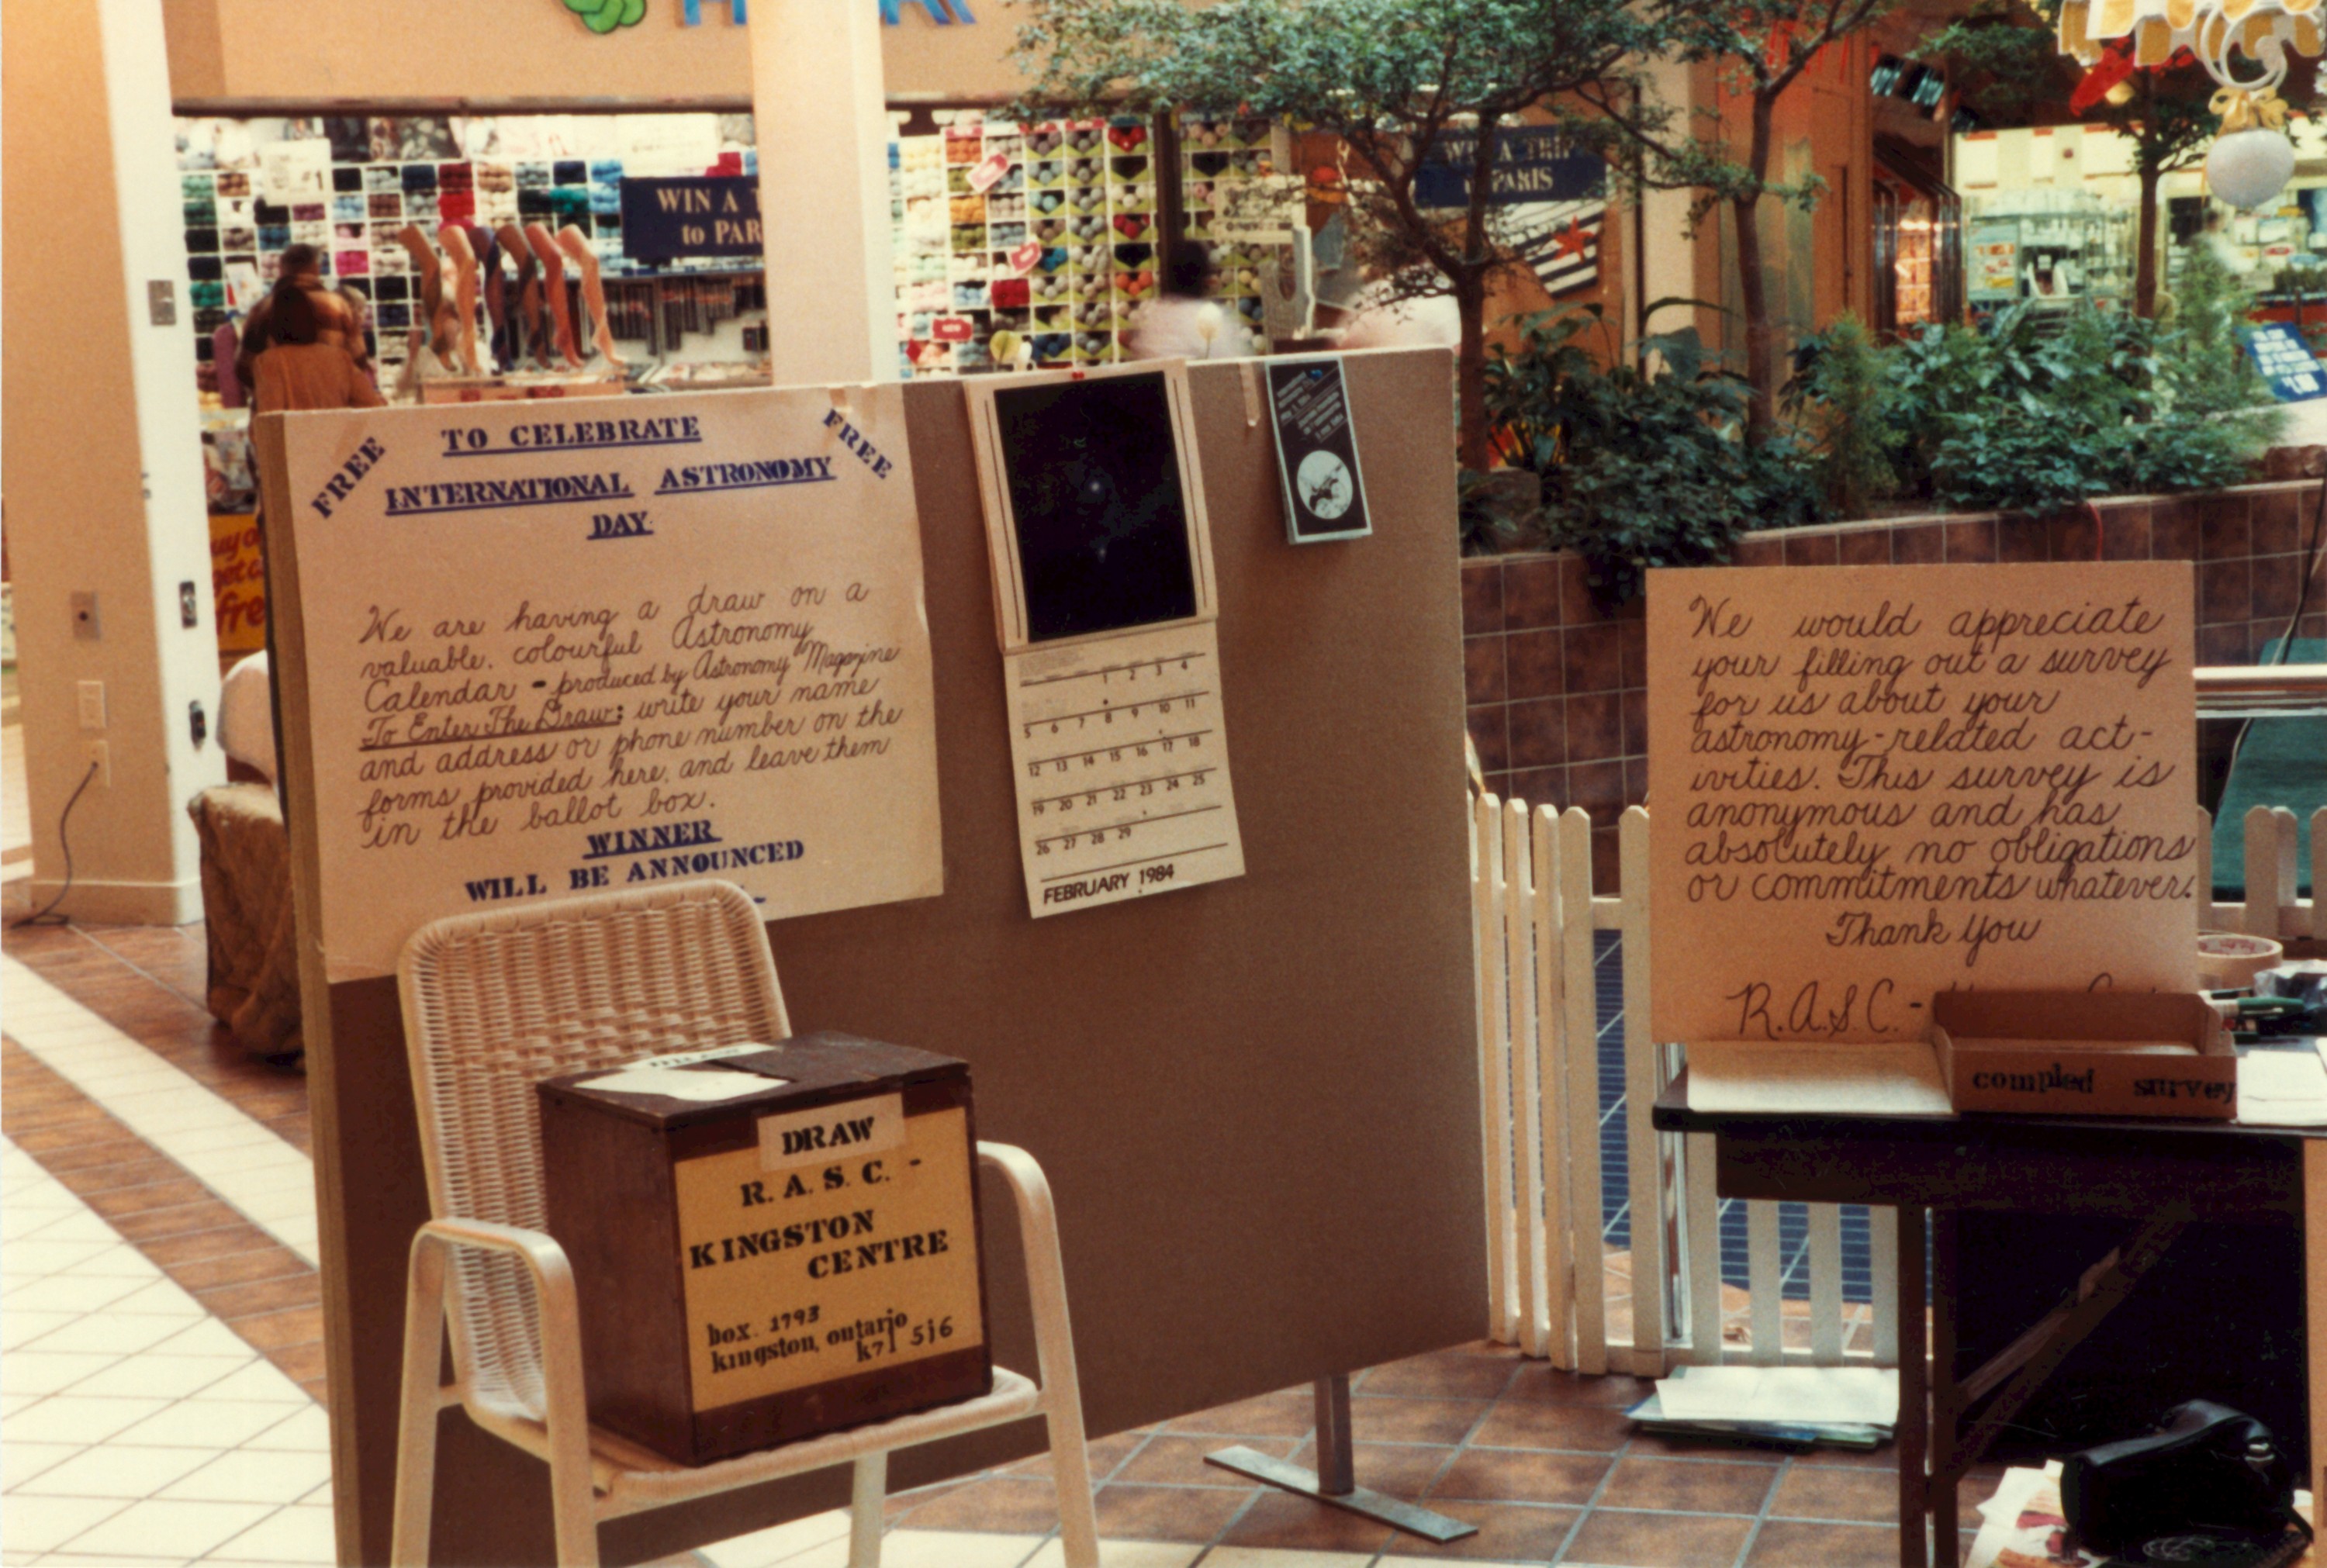 WIN A
to PAR
WIN A TRIP
to PARIS
FREE
TO CELEBRATE
FREE
INTERNATIONAL ASTRONOMY
DAY
We are having a draw on a
valuable, colourful Astronomy
Calendar - produced by Astronomy Magazine
To Enter The Draw: write your name
and address or phone number on the
forms provided here, and leave them
in the ballot box.
WINNER
WILL BE ANNOUNCED
1 2 3 4
5 6 7 8 9 10 11
12 13 14 15 16 17 18
19 20 21 22 23 24 25
26 27 28 29
FEBRUARY 1984
We would appreciate
your filling out a survey
for us about your
astronomy-related act-
ivities. This survey is
anonymous and has
absolutely no obligations
or commitments whatever.
Thank You
R.A.S.C. -
compled survey
DRAW
R. A. S. C. -
KINGSTON
CENTRE
box. 1793
kingston, ontario
k7l 5j6
free